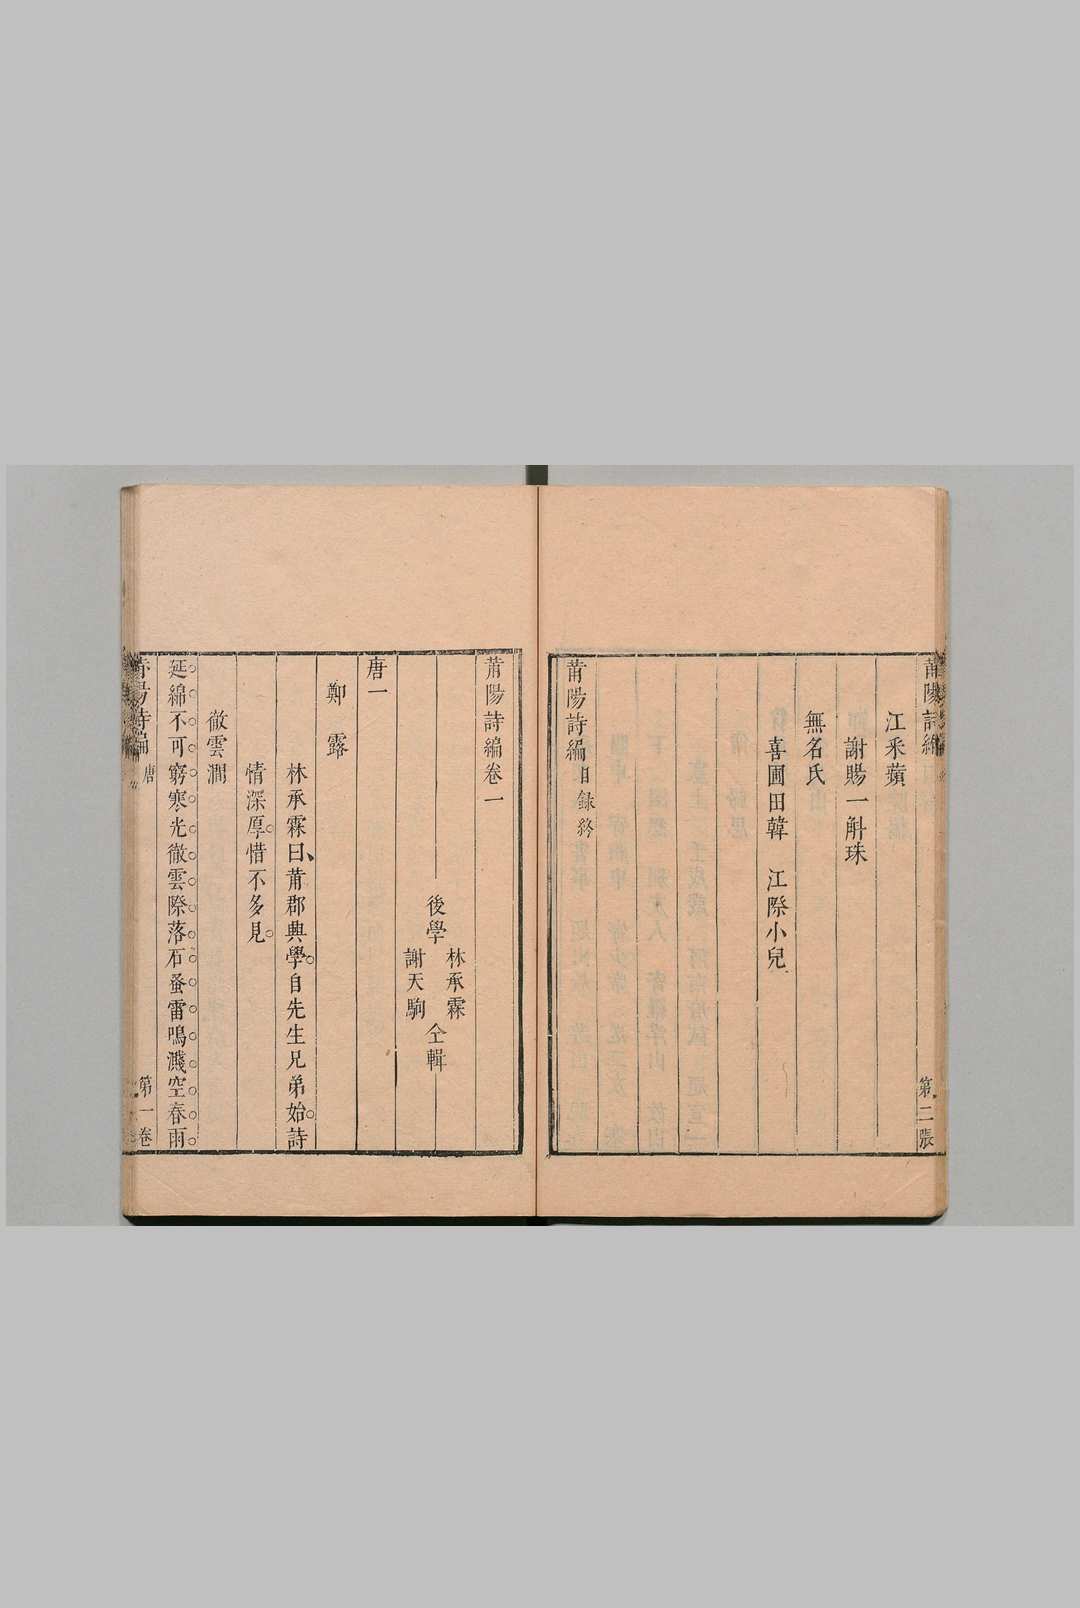 莆陽詩編
第二張
江釆蘋
謝賜一斛珠
無名氏
喜圃田韓 江際小兒
莆陽詩編目録終
莆陽詩編卷一
後學 林承霖 謝天駒 仝輯
唐一
鄭露
林承霖曰莆郡典學自先生兄弟始詩
情深厚惜不多見
徹雲澗
延綿不可窮寒光徹雲際落石蚤雷鳴濺空春雨
莆陽詩編 唐
第一卷